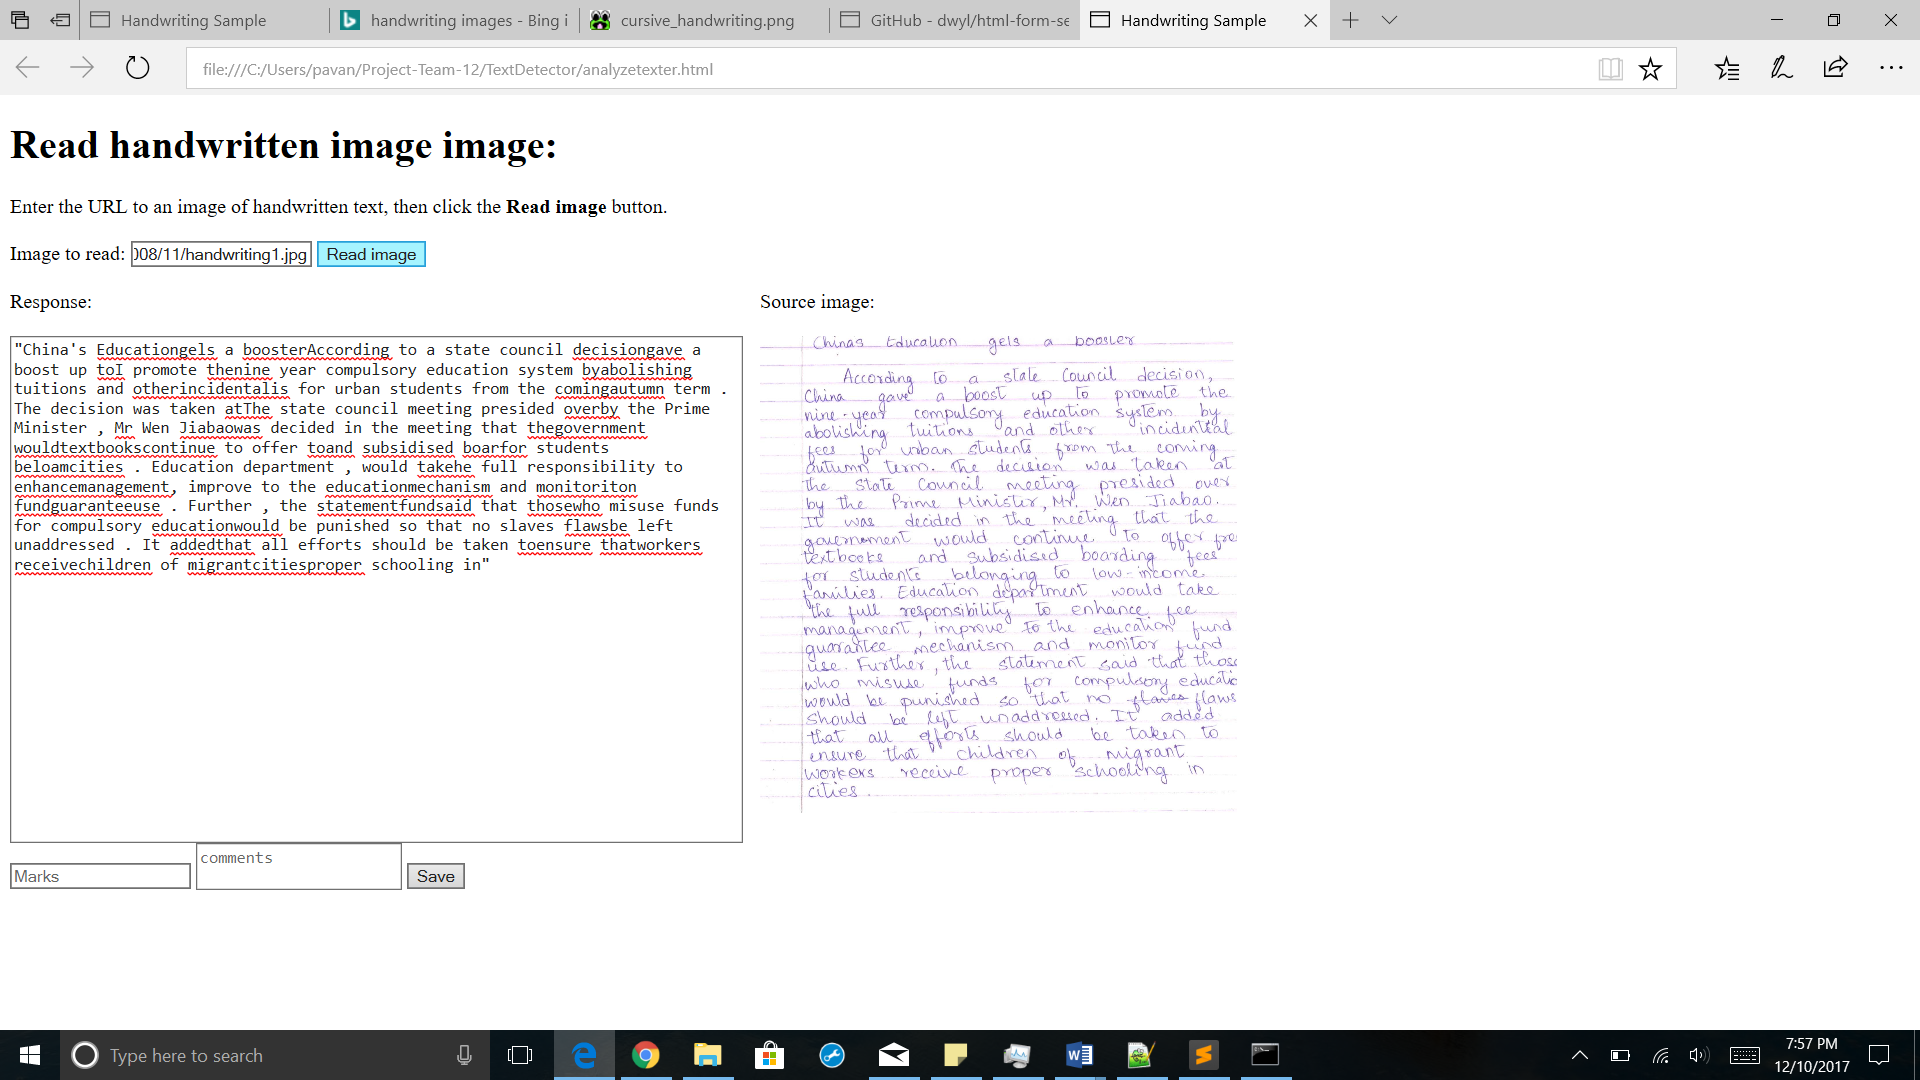 Handwriting Sample
handwriting images - Bing i
cursive_handwriting.png
GitHub - dwyl/html-form-se
Handwriting Sample
file:///C:/Users/pavan/Project-Team-12/TextDetector/analyzetexter.html
Read handwritten image image:
Enter the URL to an image of handwritten text, then click the Read image button.
Image to read: 008/11/handwriting1.jpg Read image
Response:
"China's Educationgels a boosterAccording to a state council decisiongave a
boost up toI promote thenine year compulsory education system byabolishing
tuitions and otherincidentalis for urban students from the comingautumn term .
The decision was taken atThe state council meeting presided overby the Prime
Minister , Mr Wen Jiabaowas decided in the meeting that thegovernment
wouldtextbookscontinue to offer toand subsidised boarfor students
beloamcities . Education department , would takehe full responsibility to
enhancemanagement, improve to the educationmechanism and monitoriton
fundguaranteeuse . Further , the statementfundsaid that thosewho misuse funds
for compulsory educationwould be punished so that no slaves flawsbe left
unaddressed . It addedthat all efforts should be taken toensure thatworkers
receivechildren of migrantcitiesproper schooling in"
Marks
comments
Save
Source image:
Chinas Education gels a booster
According to a state Council decision,
China gave a boost up to promote the
nine-year compulsory education system by
abolishing tuitions and other incidential
fees for urban students from the coming
autumn term. The decision was taken at
the State Council meeting presided over
by the Prime Minister, Mr. Wen Jiabao.
It was decided in the meeting that the
government would continue to offer free
textbooks and subsidised boarding fees
for students belonging to low-income
families. Education department would take
the full responsibility to enhance fee
management, improve to the education fund
guarantee mechanism and monitor fund
use. Further, the statement said that those
who misuse funds for compulsory educatio
would be punished so that no flaws
should be left unaddressed. It added
that all efforts should be taken to
ensure that children of migrant
workers receive proper schooling in
cities.
Type here to search
7:57 PM
12/10/2017